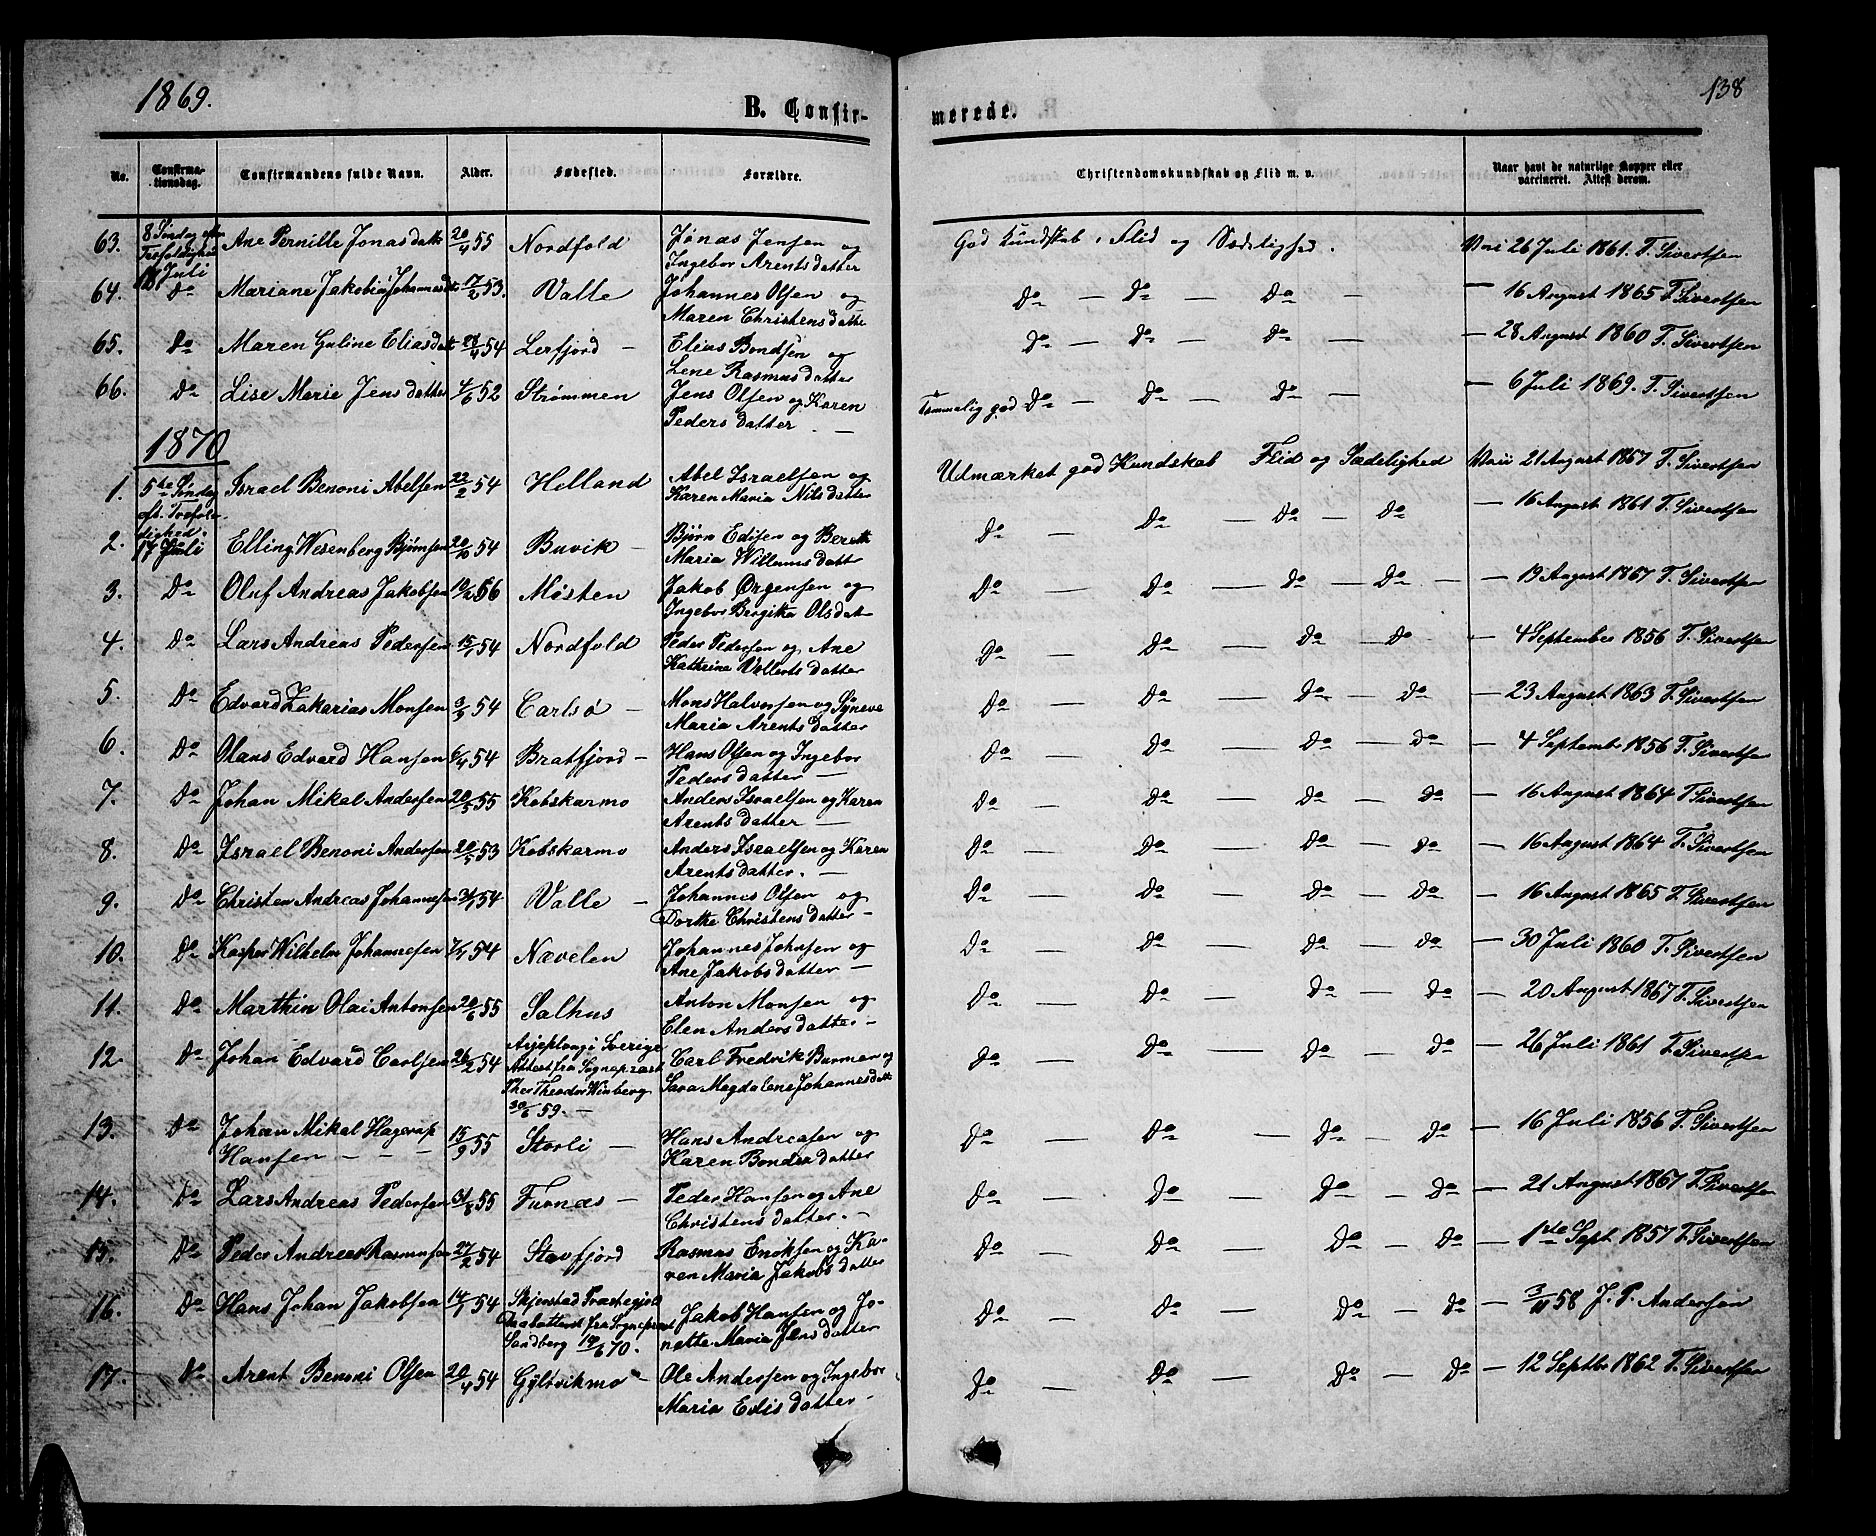 1869.
138
B. Confir-
merede.
No.
Confirma-
tionsdag.
Confirmandens fulde Navn.
Alder.
Fødested.
Forældre.
Christendomskundskab og Flid m. v.
Naar havt de naturlige Kopper eller
vaccineret. Attest derom.
63. 8 Søndag efter Ane Pernille Jonasdatt 20/4 55 Nordfold Jonas Jensen og God Kundskab, Flid og Sædelighed. Vac 26 Juli 1861. T. Sivertsen
Trefoldighed Ingebor Arentsdatter
18 Juli
64. Do Mariane Jakobia Johannesdtr 17/2 53. Valle Johannes Olsen og Do — Do — Do — — 16 August 1865 T. Sivertsen
Maren Christensdatter
65. Do Maren Guline Eliasdatt 28/4 54 Lerfjord — Elias Bendsen og Do — Do — Do — — 28 August 1860 T. Sivertsen
Lene Rasmusdatter
66. Do Lise Marie Jensdatter 4/6 52 Strømmen Jens Olsen og Karen Temmelig god Do — Do — Do — — 6 Juli 1869. T. Sivertsen
Pedersdatter —
1870
1. 5te Søndag Israel Benoni Abelsen 22/2 54 Helland Abel Israelsen og Udmærket god Kundskab Flid og Sædelighed Vac 21 August 1867 T. Sivertsen
eft. Trefol- Karen Maria Nilsdatter
dighed.
2. 17 Juli Elling Wesenberg Bjørnsen 20/10 54 Buvik — Bjørn Edisen og Berett Do — Do — Do — Do — 16 August 1861 T. Sivertsen
Maria Willumsdatt
3. Do Oluf Andreas Jakobsen 10/2 56 Møsten Jakob Ørgensen og Do — Do — Do — Do — — 19 August 1867 T. Sivertsen
Ingebor Birgitha Olsdat
4. Do Lars Andreas Pedersen 15/1 54 Nordfold Peder Pedersen og Ane Do — Do — Do — Do — 4 September 1856 T. Sivertsen
Kathrine Vollertsdatter
5. Do Edvard Zakarias Monsen 3/9 54 Carlsø — Mons Halvorsen og Syneve Do — Do — Do — Do — 23 August 1863 T. Sivertsen
Maria Arentsdatter
6. Do Olans Edvard Hansen 6/4 54 Bratfjord — Hans Olsen og Ingebor Do — Do — Do — Do — 4 Septembr 1856 T. Sivertsen
Pedersdatter —
7. Do Johan Mikal Andersen 20/5 55 Kobskarmo Anders Israelsen og Karen Do — Do — Do — Do — 16 August 1864 T. Sivertsen
Arentsdatter —
8. Do Israel Benoni Andersen 20/5 53 Kobskarmo Anders Israelsen og Karen Do — Do — Do — Do — 16 August 1864 T. Sivertsen
Arentsdatter. —
9. Do Christen Andreas Johannesen 31/7 54 Valle — Johannes Olsen og Do — Do — Do — Do — 16 August 1865 T. Sivertsen
Dorthe Christensdatter —
10. Do Kasper Wilhelm Johannesen 7/7 54 Nævelen Johannes Johnsen og Do — Do — Do — Do — 30 Juli 1860 T. Sivertsen
Ane Jakobsdatter —
11. Do Marthin Olai Antonsen 20/6 55 Salhus Anton Monsen og Do — Do — Do — Do — 20 August 1867 T. Sivertsen
Elen Andersdatter —
12. Do Johan Edvard Carlsen 26/2 54 Arjeplougi Sverige Carl Fredrik Burman og Do — Do — Do — Do — 26 Juli 1861 T. Sivertsen
Attest fra Sognepræst Sara Magdalene Johannesdatt
Ther Theodor Winberg
30/6 59. —
13. Do Johan Mikal Hagerup 15/9 55 Storli — Hans Andreasen og Do — Do — Do — Do — 16 Juli 1856 T. Sivertsen
Hansen — — — Karen Bendsdatter
14. Do Lars Andreas Pedersen 31/8 55 Furnæs — Peder Hansen og Ane Do — Do — Do — Do — 21 August 1867 T. Sivertsen
Christensdatter. —
15. Do Peder Andreas Rasmussen 27/2 54 Stavfjord Rasmus Enoksen og Ka- Do — Do — Do — Do — 1ste Sept 1857 T. Sivertsen
ren Maria Jakobsdatter
16. Do Hans Johan Jakobsen 14/1 54 Skjerstad Præstegjeld Jakob Hansen og Jo- Do — Do — Do — Do — 3/11 58 J. P. Andersen
Daabattest fra Sognepræst nette Maria Jensdatter
Sandberg 19/6 70.
17. Do Arent Benoni Olsen 20/4 54 Gyltvikmo — Ole Andersen og Ingebor Do — Do — Do — Do — 12 Septbr 1862 T. Sivertsen
Maria Edisdatter —